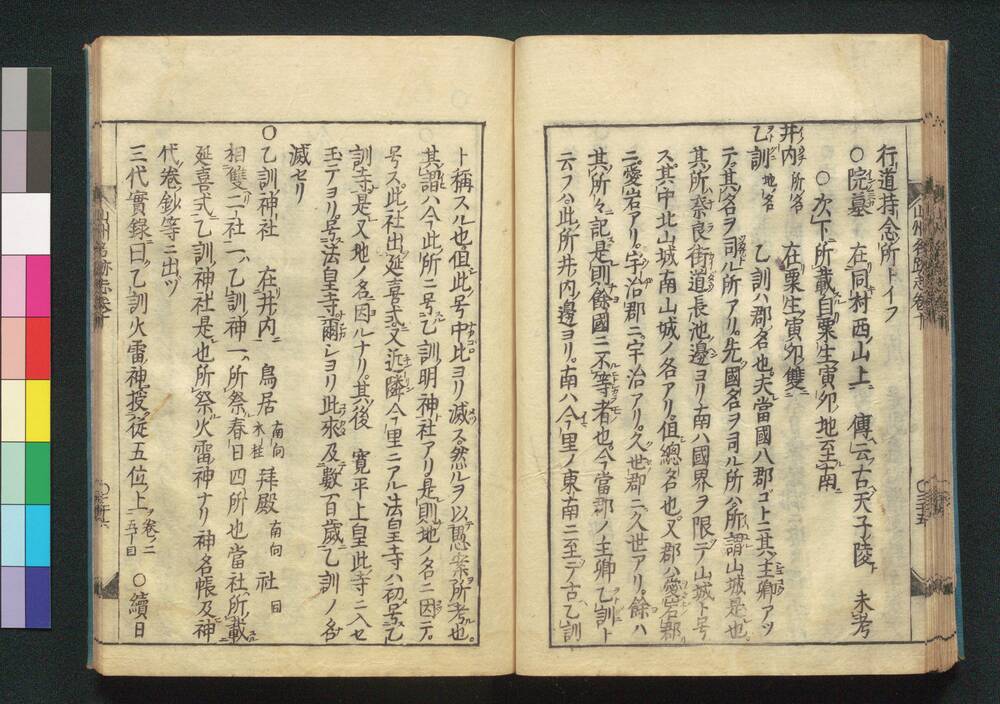 行道持念所トイフ
○院墓　在同村西ノ山上ニ　傳云古天子ノ陵ト　未考
○次下所載自粟生寅卯ノ地至南ニ
井内　所ノ名　在粟生ノ寅卯ノ雙ニ
乙訓　地ノ名　乙訓ハ郡ノ名也夫當國八郡ゴトニ其主郷アツ
テ其名ヲ司ル所アリ先國名ヲ司ル所ハ所謂山城是也
其所奈良街道長池ノ邊ヨリ南ハ國界ヲ限テ山城ト号
ス其中北山城南山城ノ名アリ但總名也又郡ハ愛宕郡
ニ愛宕アリ宇治郡ニ宇治アリ久世郡ニ久世アリ餘ハ
其所々ニ記是則餘國ニ不等者也今當郡ノ主郷乙訓ト
云フハ此所井内ノ邊ヨリ南ハ今里ノ東南ニ至テ古乙訓
ト稱スル也但此号中比ヨリ滅ス然ルヲ以愚案所考也
其謂ハ今此所ニ号乙訓明神社アリ是則地ノ名ニ因テ
号ス此社出延喜式又近隣今里ニアル法皇寺ハ初号乙
訓寺是又地ノ名ニ因ルナリ其後　寛平上皇此寺ニ入セ
玉テヨリ号法皇寺爾シヨリ此來及數百歳乙訓ノ名
滅セリ
○乙訓神社　在井内ニ　鳥居　南向　木柱　拜殿　南向　社　目
相雙二社一ハ乙訓神一ハ所祭春日四所也當社所載
延喜式乙訓神社是也所祭火雷神ナリ神名帳及神
代卷鈔等ニ出ヅ
三代實録曰乙訓火雷神授從五位上　卷ノ二　五丁目　○續日
山州名跡志卷十
山州名跡志卷十